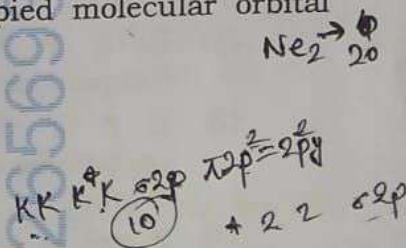 pied molecular orbital
Ne₂ →
20
26569
KK K*K σ2p π2p²=2p²y
10
2 2 σ2p